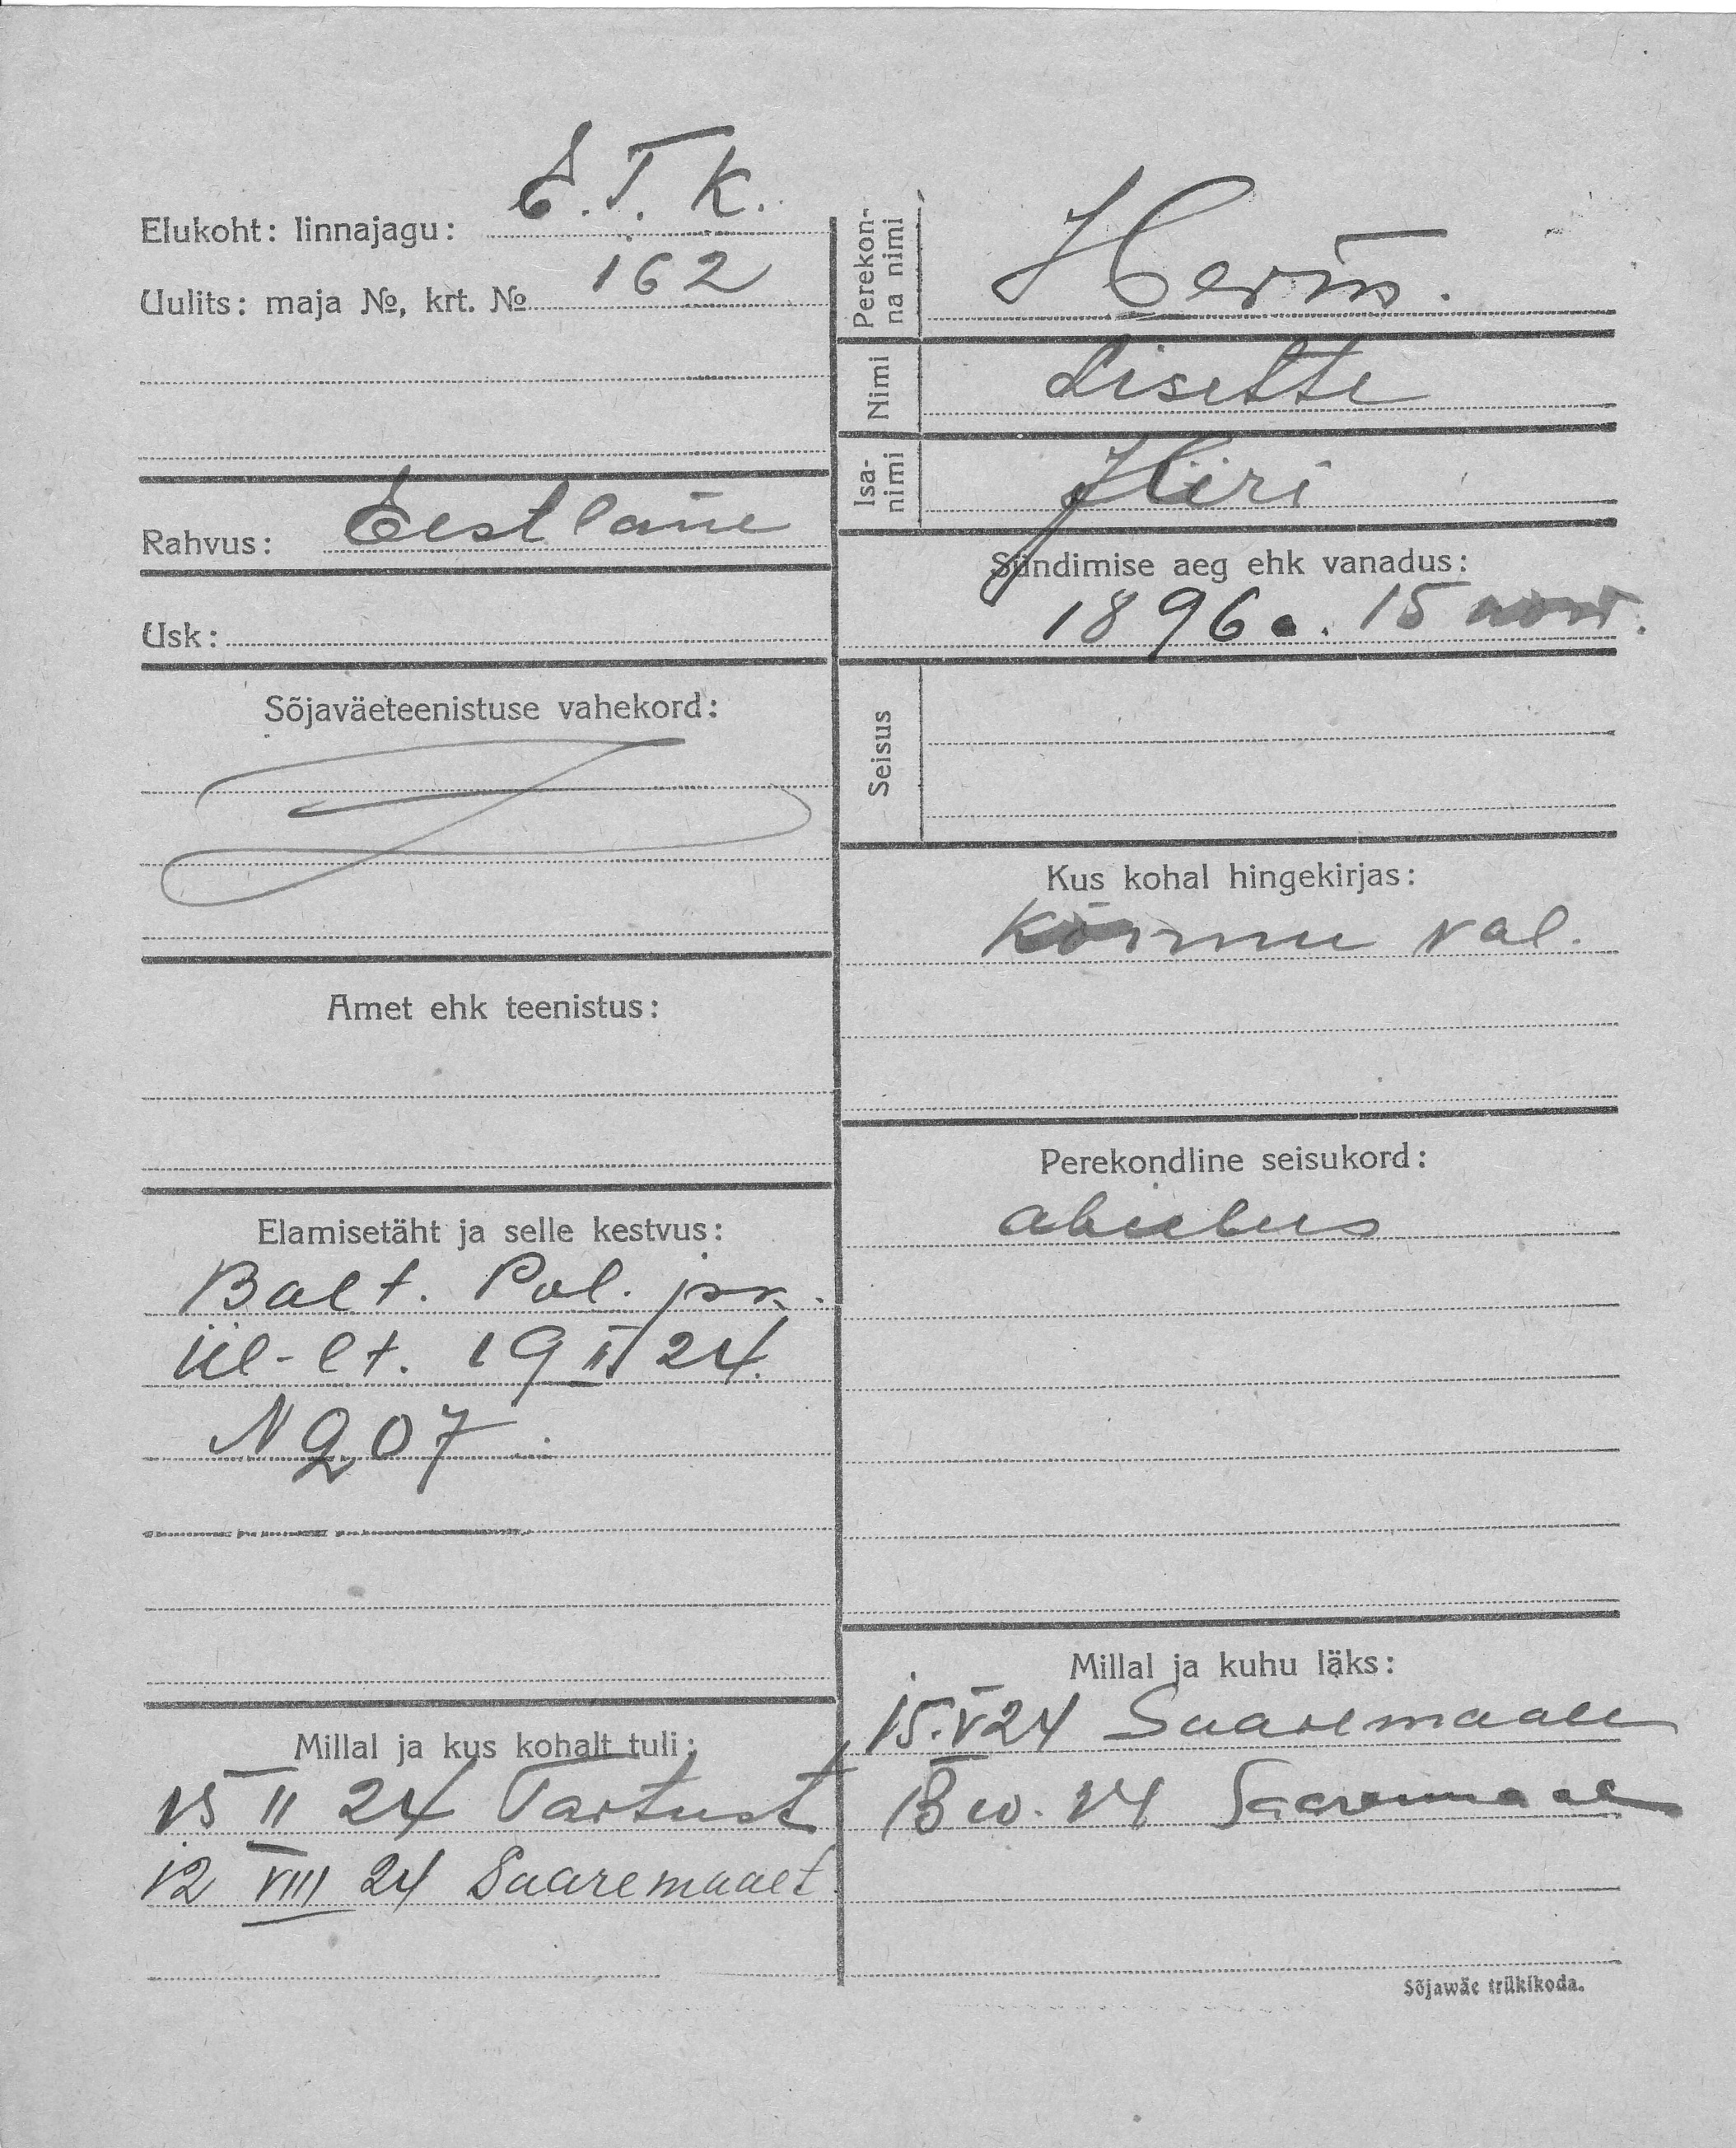 Elukoht: linnajagu: E. T. K.
Uulits: maja №, krt. № 162
Rahvus: Eestlane
Usk:
Sõjaväeteenistuse vahekord:
Amet ehk teenistus:
Elamisetäht ja selle kestvus:
Balt. Pol. jsk.
Ül-et. 19 II 24.
N 207
Millal ja kus kohalt tuli:
15 II 24 Tartust
12 VIII 24 Saaremaalt
Perekon-
na nimi
Nimi Lisette
Isa-
nimi Jüri
Sündimise aeg ehk vanadus:
1896 a. 15 nov.
Seisus
Kus kohal hingekirjas:
Kõrmu val.
Perekondline seisukord:
abielus
Millal ja kuhu läks:
15.V 24 Saaremaale
24 Saaremaale
Sõjawäe trükikoda.